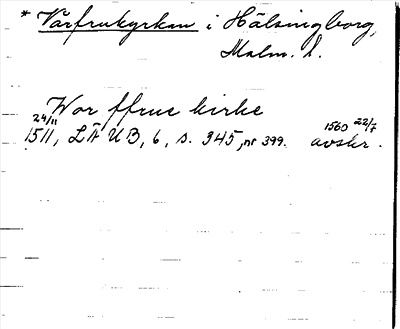 * Vårfrukyrkan i Hälsingborg,
Malm. l.
Wor ffrue kirke
24/11 1511, LÄ UB, 6, s. 345, nr 399. 1560 22/7 avskr.